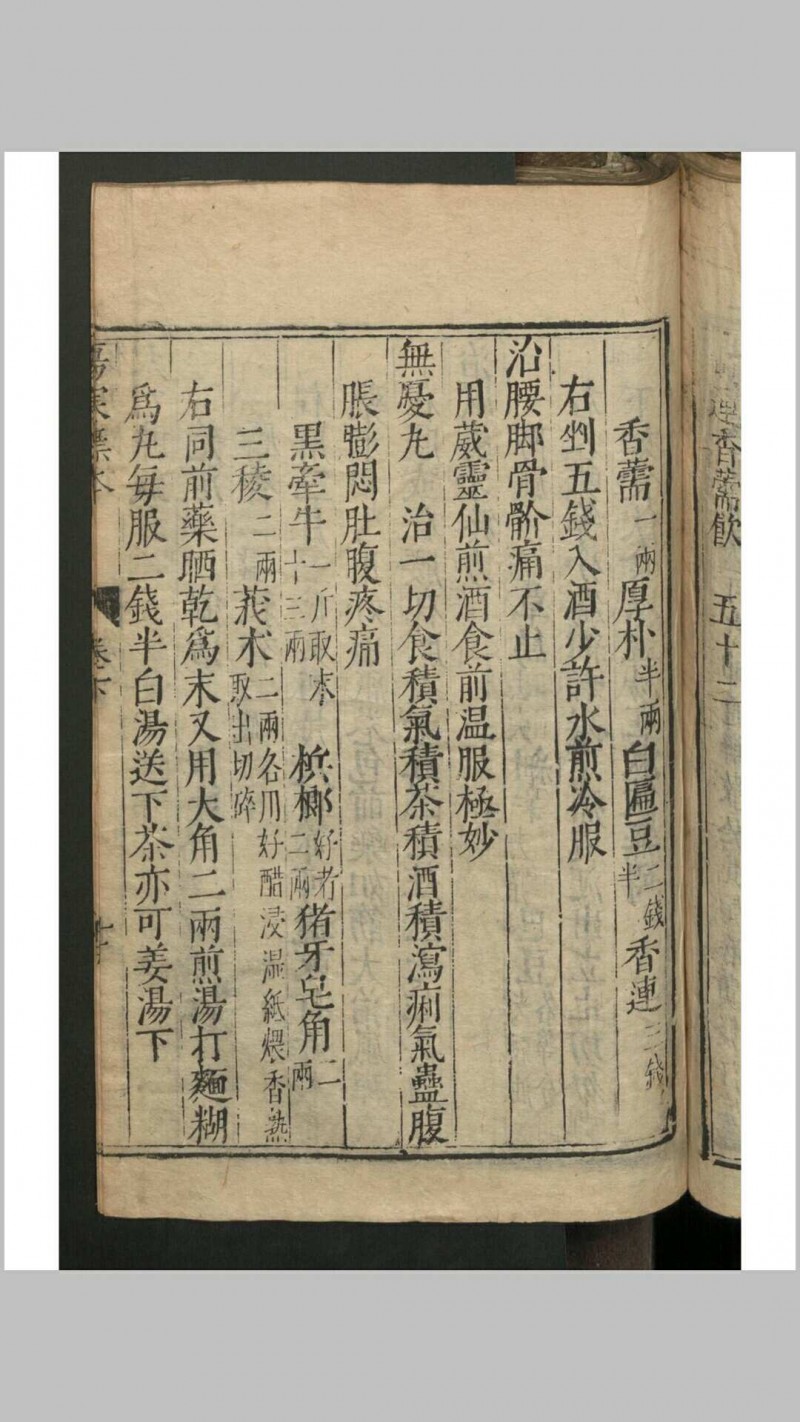 香薷飲 五十二
香薷一兩厚朴半兩白匾豆二錢半香連二錢
右剉五錢入酒少許水煎冷服
治腰脚骨骱痛不止
用葳靈仙煎酒食前温服極妙
無憂丸 治一切食積氣積茶積酒積瀉痢氣蠱腹
脹膨悶肚腹疼痛
黑牽牛一斤取末十三兩 梹榔好者二兩猪牙皂角二兩
三稜二兩莪朮二兩各用好醋浸濕紙煨香熟取出切碎
右同前藥晒乾為末又用大角二兩煎湯打麵糊
為丸每服二錢半白湯送下茶亦可姜湯下
卷下